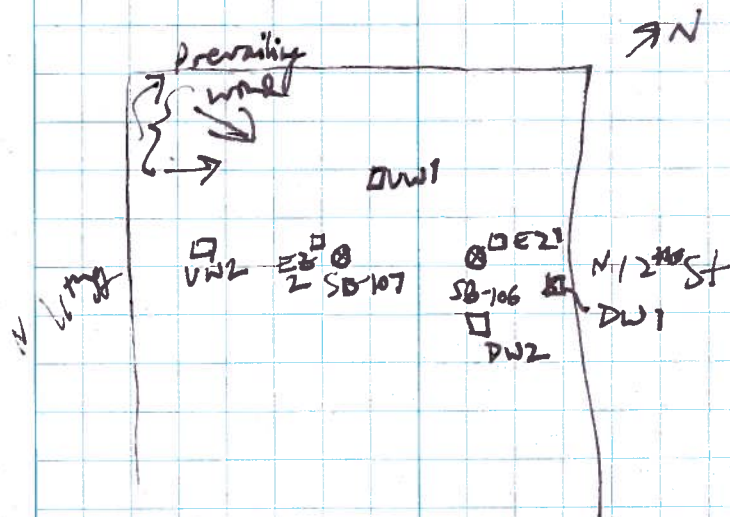 N
Prevailing
wind
UW1
UW2
EZ
2
SB-107
EZ1
SB-106
N 12th St
DW1
DW2
N 11th